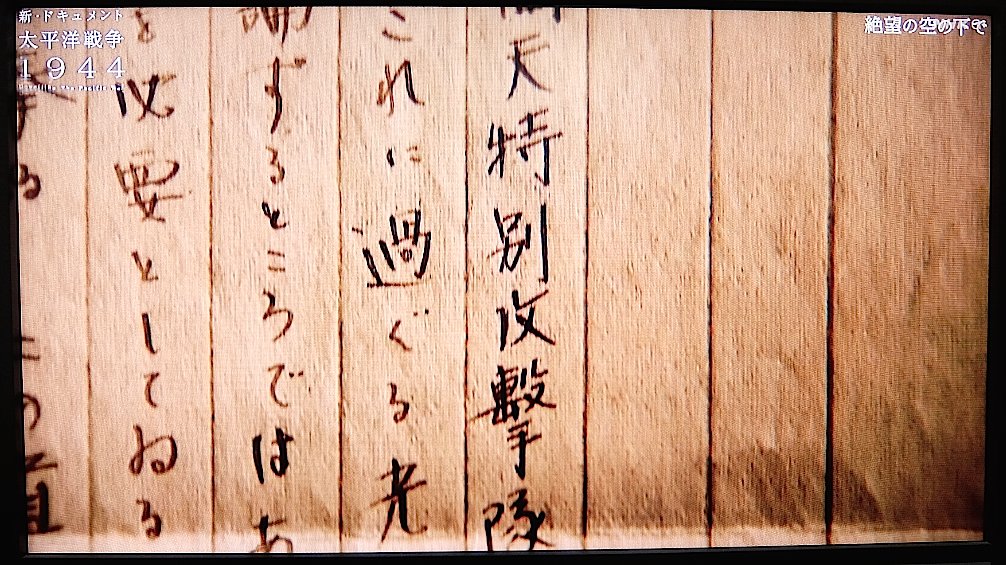 新・ドキュメント
太平洋戦争
1944
絶望の空の下で
天特別攻撃隊
これに過ぐる光
ずるところではあ
を必要としてゐる
る この道